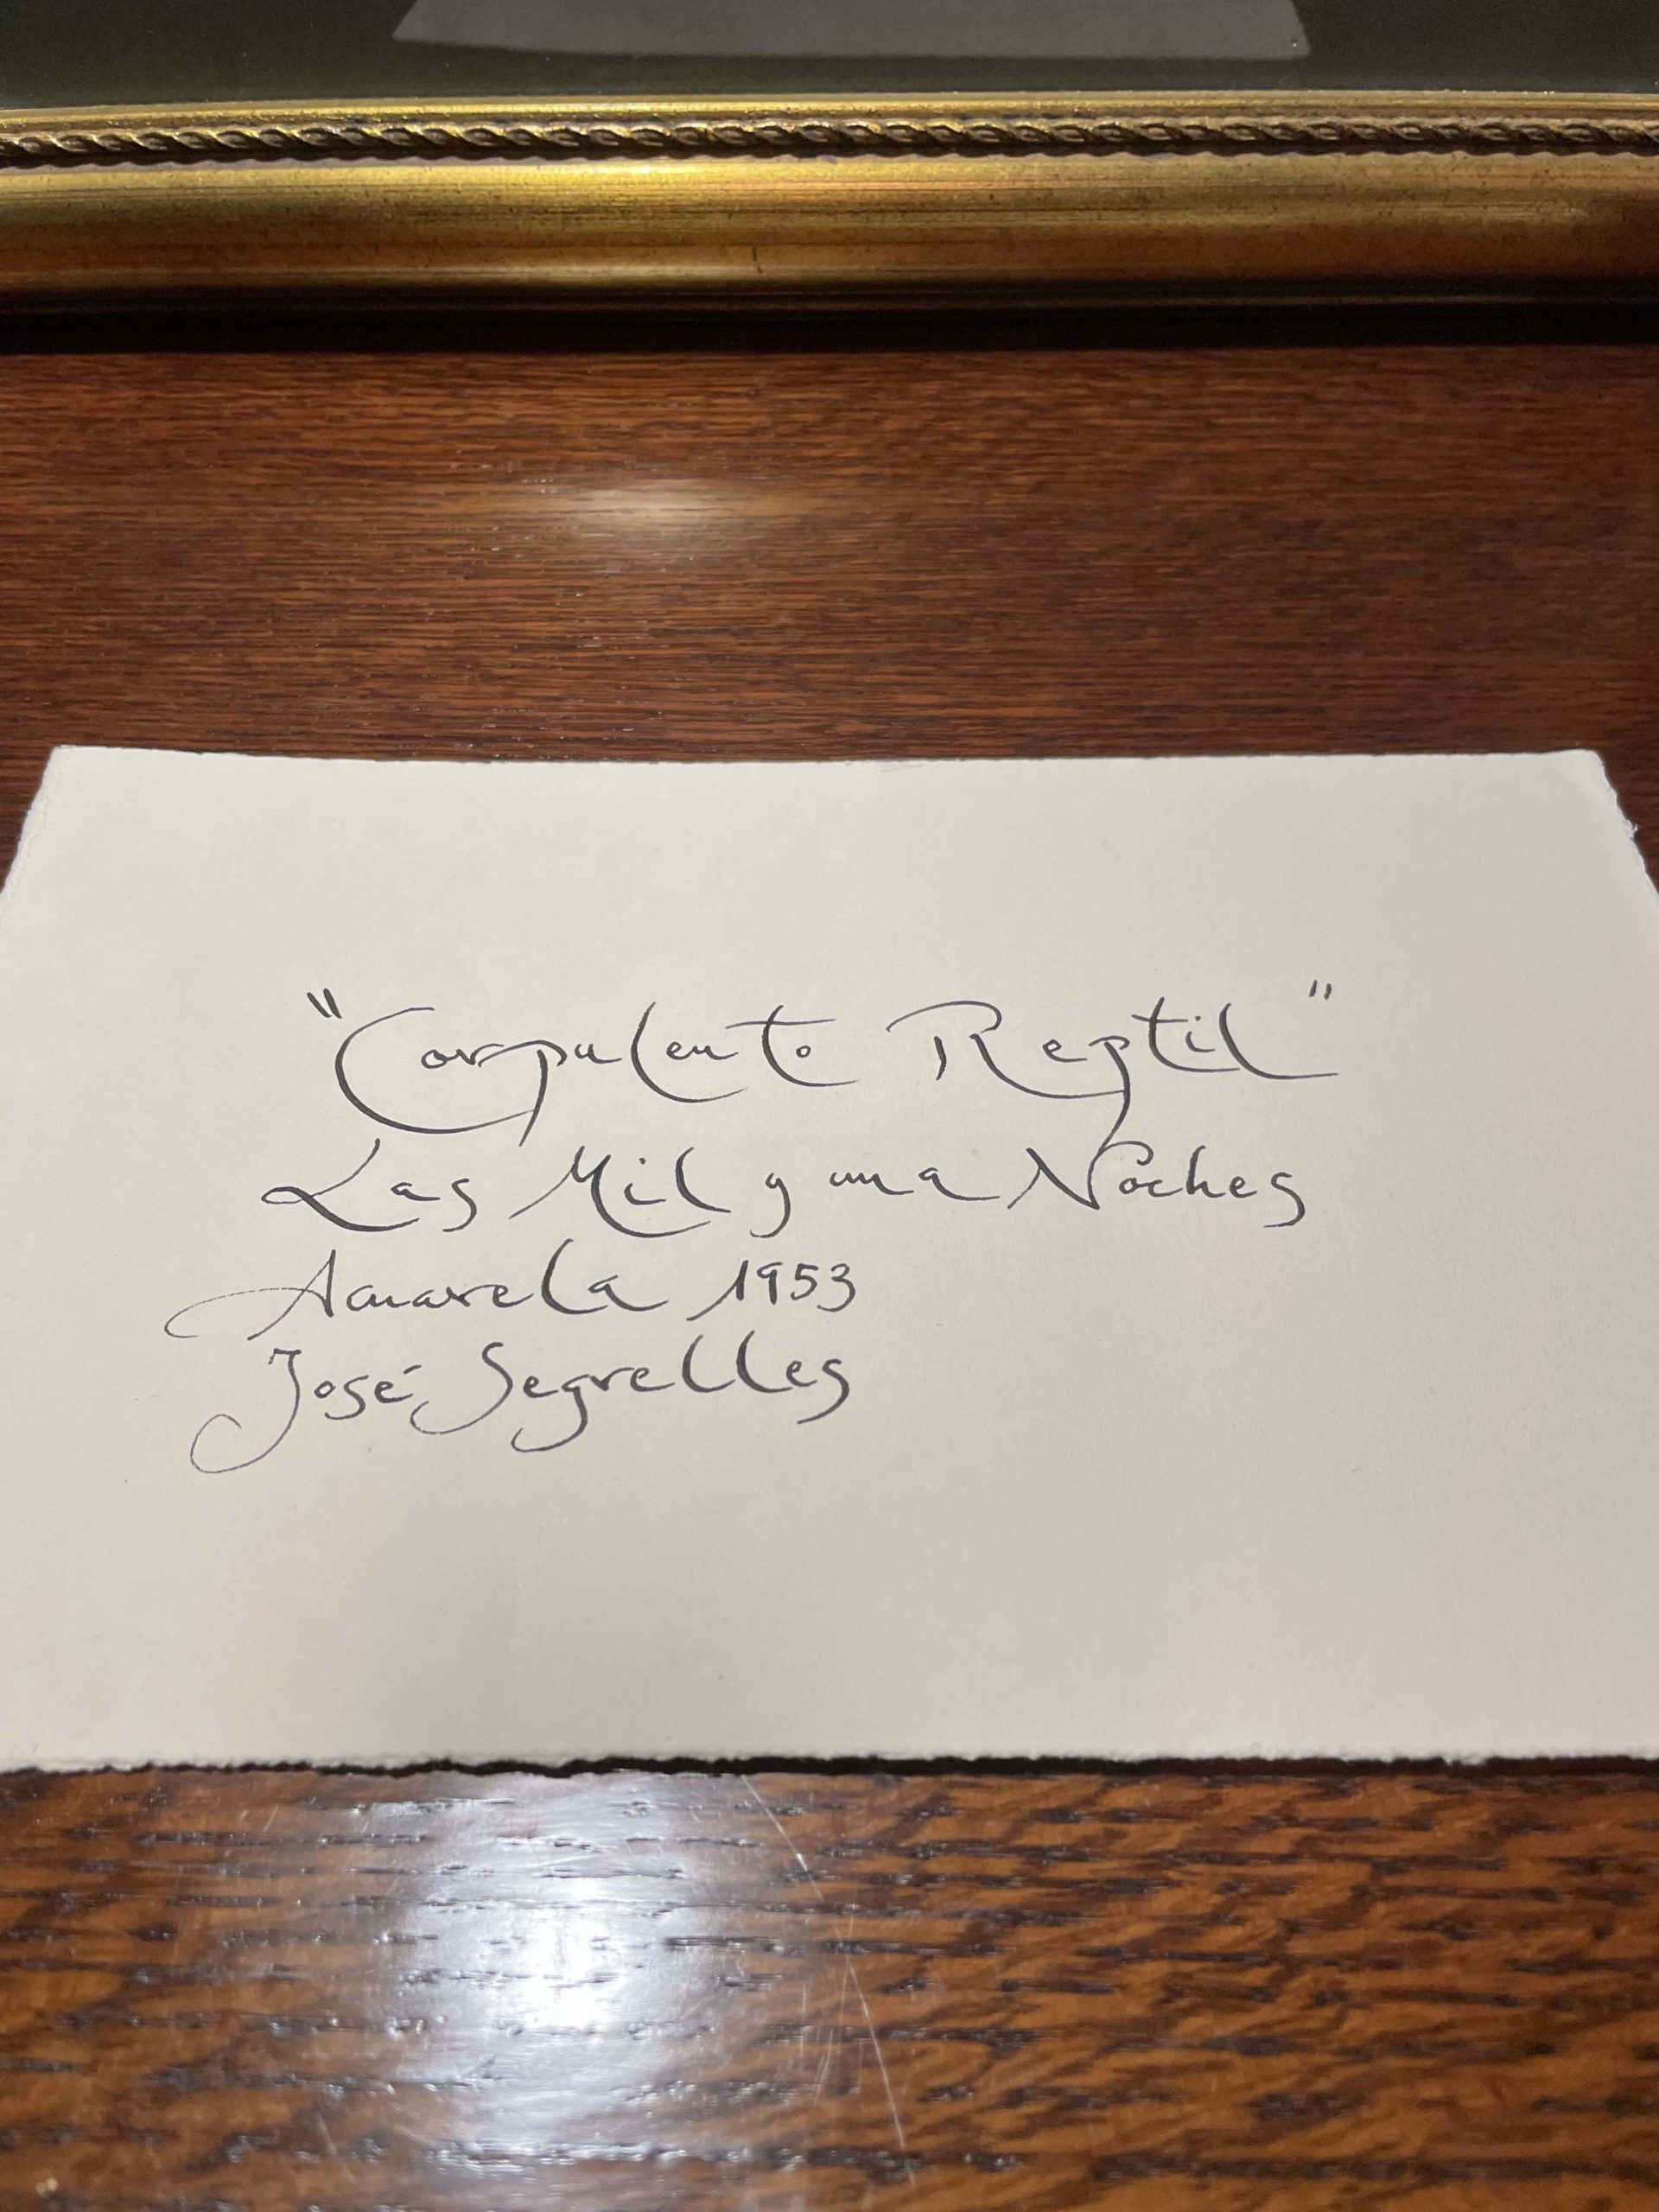 "Corpulento Reptil"
Las Mil y una Noches
Acuarela 1953
José Segrelles